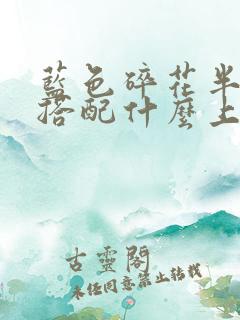 藍色碎花半
搭配什麼上
古靈閣
未經同意禁止轉載